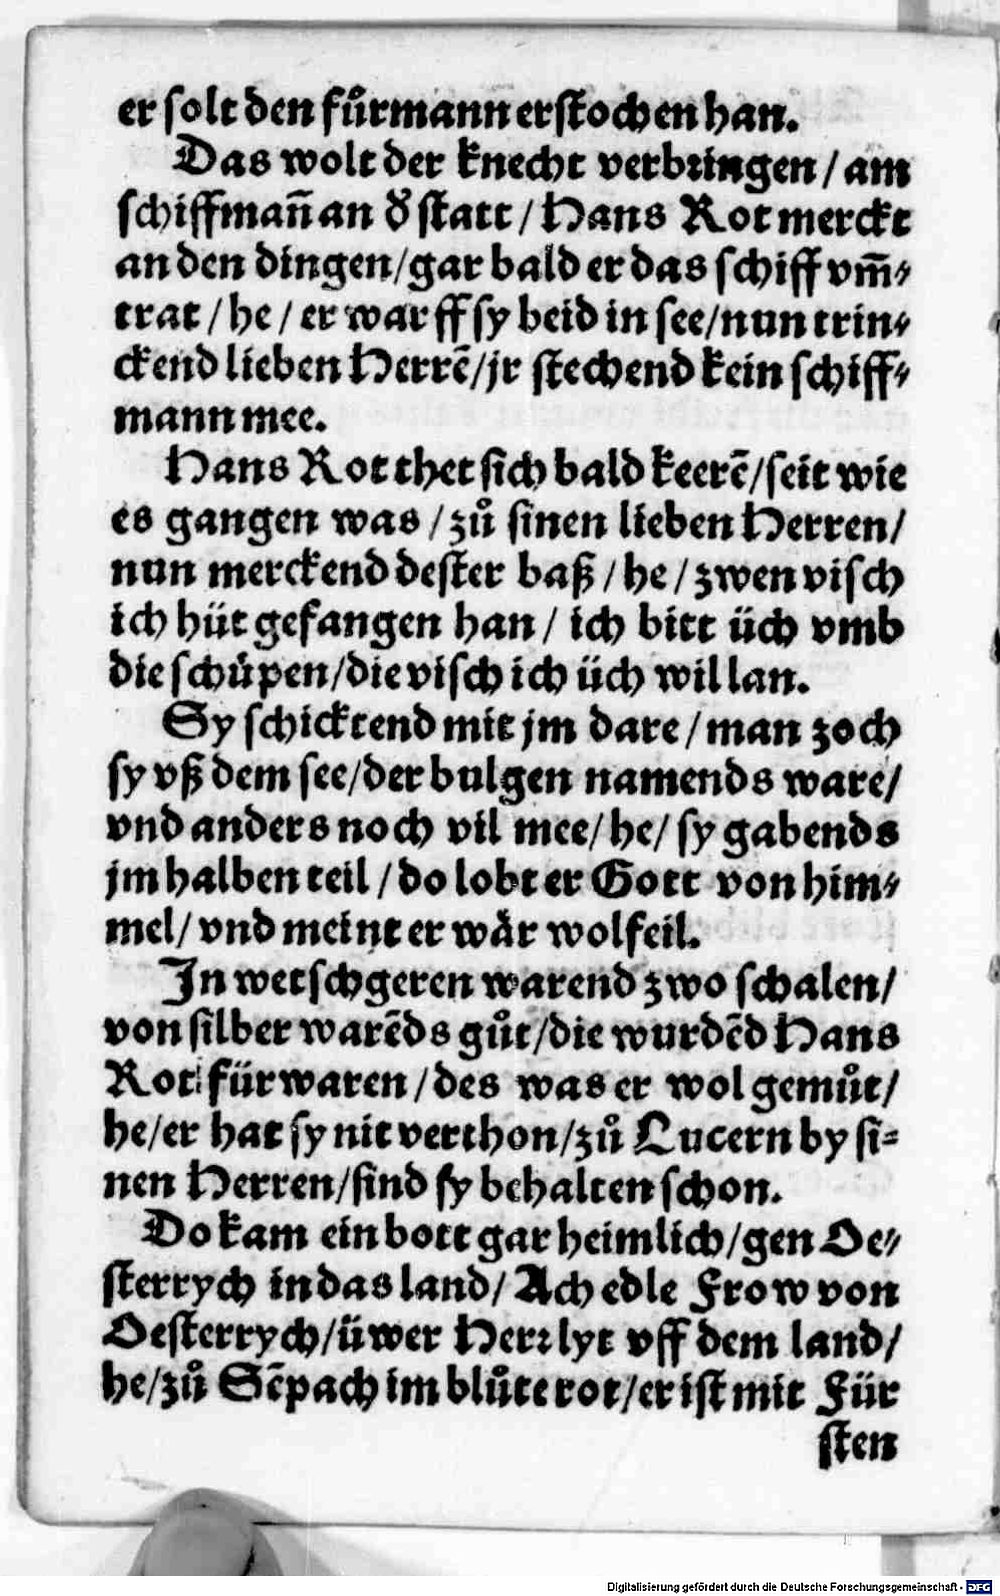 er solt den fůrmann erstochen han.
Das wolt der knecht verbringen / am
schiffmañ an d̕ statt / Hans Rot merckt
an den dingen / gar bald er das schiff vm̃⸗
trat / he / er warff sy beid in see / nun trin⸗
ckend lieben Herrẽ / jr stechend kein schiff⸗
mann mee.
Hans Rot thet sich bald keerẽ / seit wie
es gangen was / zů sinen lieben Herren /
nun merckend dester baß / he / zwen visch
ich hüt gefangen han / ich bitt üch vmb
die schůpen / die visch ich üch wil lan.
Sy schicktend mit jm dare / man zoch
sy vß dem see / der bulgen namends ware /
vnd anders noch vil mee / he / sy gabends
jm halben teil / do lobt er Gott von him⸗
mel / vnd meint er wår wolfeil.
In wetschgeren warend zwo schalen /
von silber warẽds gůt / die wurdẽd Hans
Rot für waren / des was er wol gemůt /
he / er hat sy nit verthon / zů Lucern by si⸗
nen Herren / sind sy behalten schon.
Do kam ein bott gar heimlich / gen Oe⸗
sterrych in das land / Ach edle Frow von
Oesterrych / üwer Herꝛ lyt vff dem land /
he / zů Sẽpach im blůte rot / er ist mit Für
sten
Digitalisierung gefördert durch die Deutsche Forschungsgemeinschaft - DFG